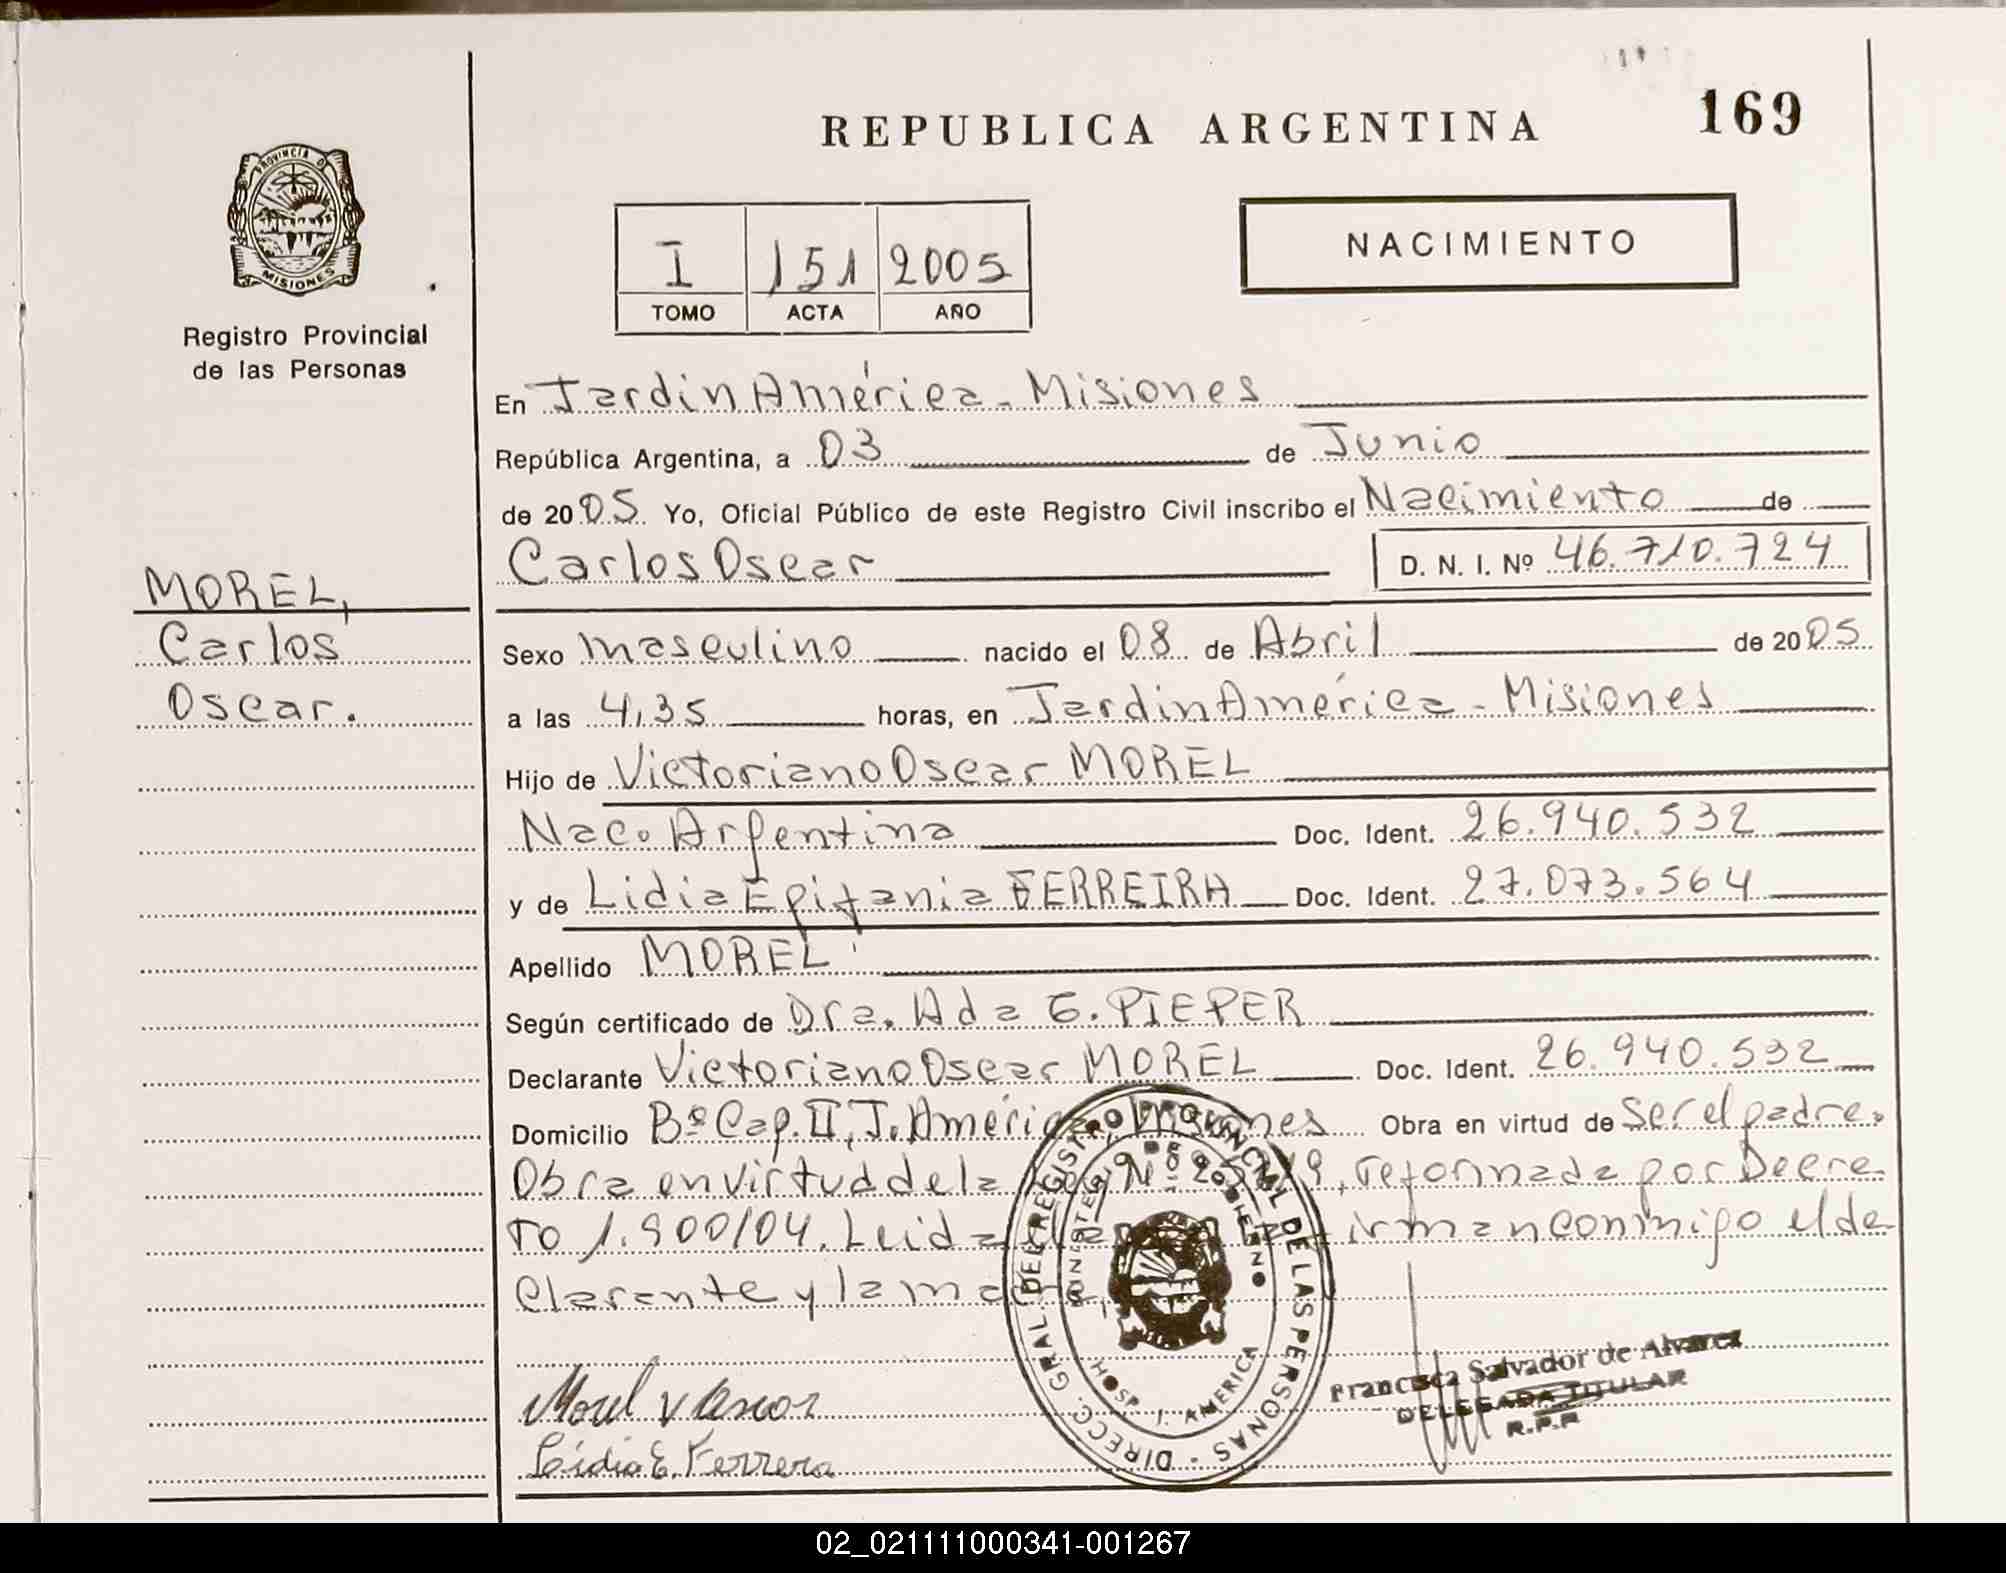 REPUBLICA ARGENTINA
169
PROVINCIA DE
MISIONES
Registro Provincial
de las Personas
I 151 2005
TOMO ACTA AÑO
NACIMIENTO
En Jardin América - Misiones
República Argentina, a 03 de Junio
de 2005 Yo, Oficial Público de este Registro Civil inscribo el Nacimiento de
Carlos Oscar D. N. I. Nº 46.710.724
MOREL,
Carlos
Oscar.
Sexo masculino nacido el 08 de Abril de 2005
a las 4,35 horas, en Jardin América - Misiones
Hijo de Victoriano Oscar MOREL
Nac. Argentina Doc. Ident. 26.940.532
y de Lidia Epifania FERREIRA Doc. Ident. 27.073.564
Apellido MOREL
Según certificado de Dra. Ada E. PIEPER
Declarante Victoriano Oscar MOREL Doc. Ident. 26.940.532
Domicilio Bº Cap. II, J. América, Misiones Obra en virtud de Ser el padre.
Obra en virtud de la Ley Nº , reformada por Decre-
to 1.900/04. Leida el acta, firman conmigo el de-
clarante y la madre.
DIRECC. GRAL DEL REGISTRO PROVINCIAL DE LAS PERSONAS
MINISTERIO DE GOBIERNO
HOSP. J. AMERICA
Francisca Salvador de Alvarez
DELEGADA TITULAR
R.P.P
Morel V
Lidia E. Ferrera
02_021111000341-001267